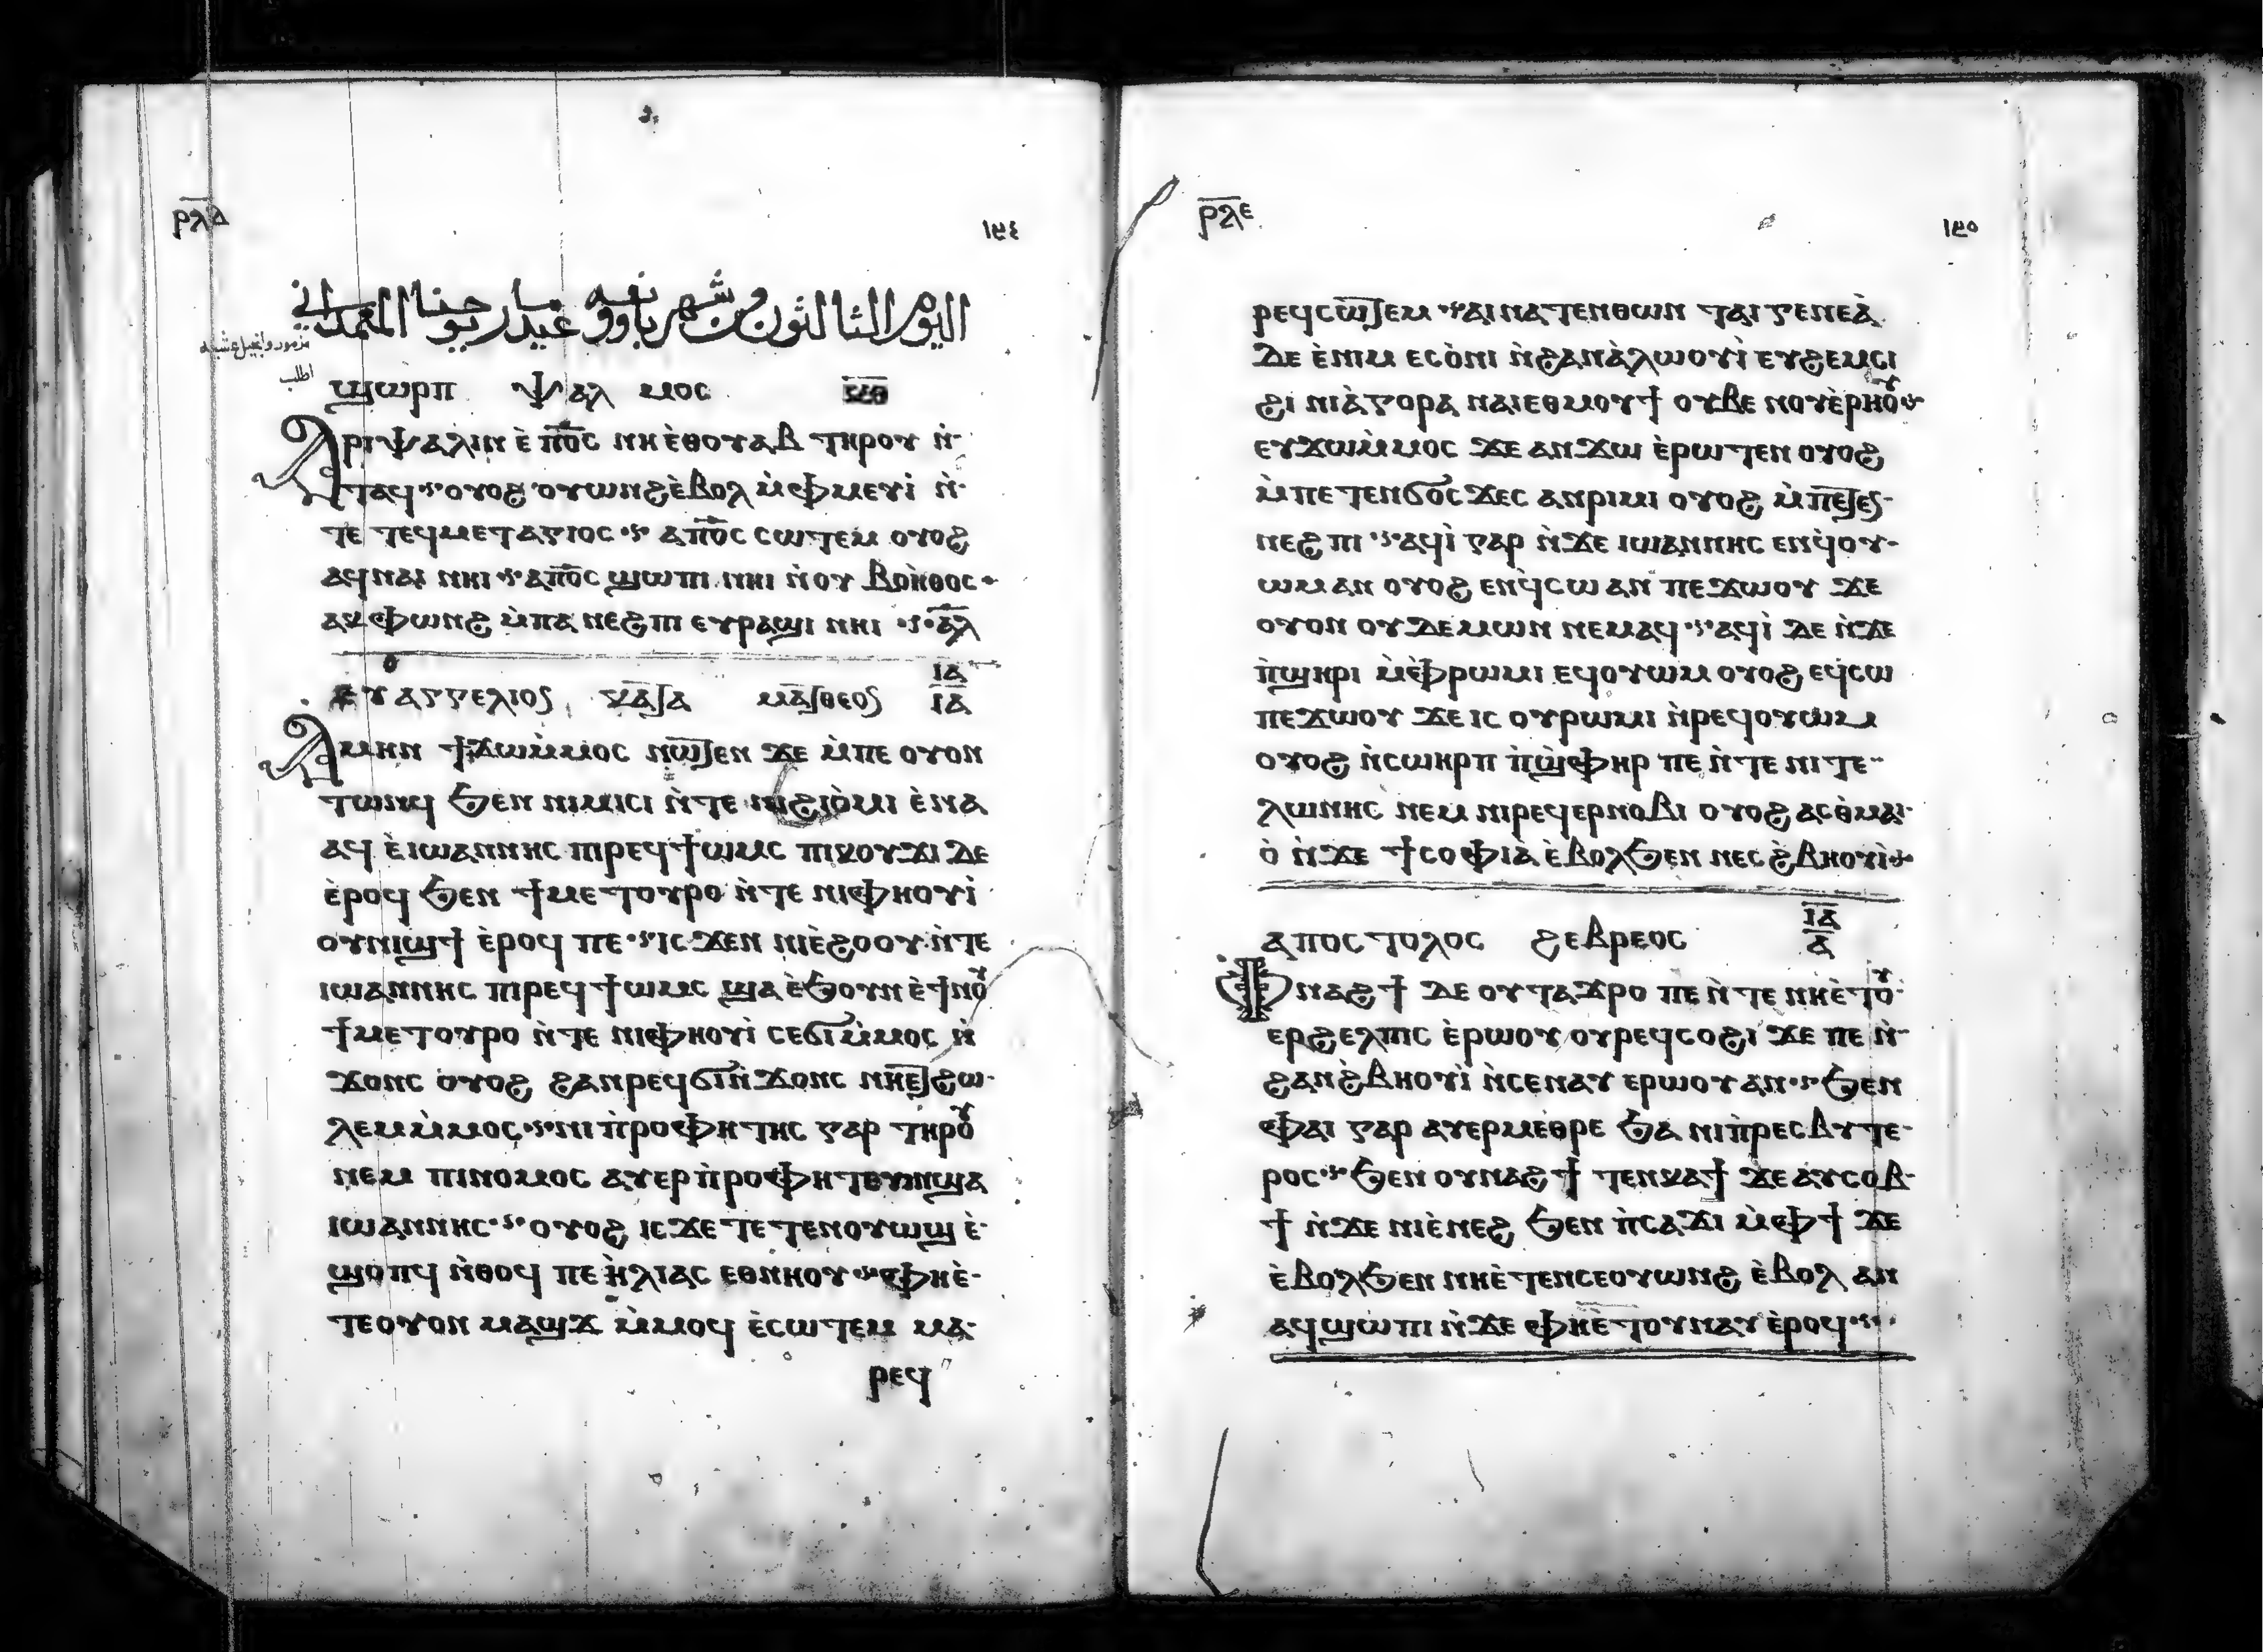 ⲣⲗⲇ
١٣٤
اليوم الثالثون من شهر باوونه عيد مار يوحنا المعمداني
مزمور وانجيل عشيه
اطلب
ϣⲱⲣⲡ ⲯⲁⲗⲙⲟⲥ
ⲁⲣⲓⲯⲁⲗⲓⲛ ⲉ̀ ⲡ̅ⲟ̅ⲥ̅ ⲛⲏ ⲉ̀ⲑⲟⲩⲁⲃ ⲧⲏⲣⲟⲩ ⲛ̀-
ⲧⲁϥ ⲟⲩⲟϩ ⲟⲩⲱⲛϩ ⲉ̀ⲃⲟⲗ ⲙ̀ⲫⲙⲉⲩⲓ̀ ⲛ̀-
ⲧⲉ ⲧⲉϥⲙⲉⲧⲁⲅⲓⲟⲥ ⲁⲡ̅ⲟ̅ⲥ̅ ⲥⲱⲧⲉⲙ ⲟⲩⲟϩ
ⲁϥⲛⲁⲓ ⲛⲏⲓ ⲁⲡ̅ⲟ̅ⲥ̅ ϣⲱⲡⲓ ⲛⲏⲓ ⲛ̀ⲟⲩ ⲃⲟⲏ̀ⲑⲟⲥ
ⲁⲕⲫⲱⲛϩ ⲙ̀ⲡⲁ ⲛⲉϩⲡⲓ ⲉⲩⲣⲁϣⲓ ⲛⲏⲓ ⲁ̅ⲗ̅
ⲓ̅ⲁ̅
ⲉⲩⲁⲅⲅⲉⲗⲓⲟⲥ ⲕⲁⲧⲁ ⲙⲁⲧⲑⲉⲟⲥ ⲓ̅ⲁ̅
ⲁⲙⲏⲛ ϯϫⲱⲙ̀ⲙⲟⲥ ⲛⲱⲧⲉⲛ ϫⲉ ⲙ̀ⲡⲉ ⲟⲩⲟⲛ
ⲧⲱⲛϥ ϧⲉⲛ ⲛⲓⲙⲓⲥⲓ ⲛ̀ⲧⲉ ⲛⲓϩⲓⲟ̀ⲙⲓ ⲉ̀ⲛⲁ
ⲁϥ ⲉ̀ⲓⲱⲁⲛⲛⲏⲥ ⲡⲓⲣⲉϥϯⲱⲙⲥ ⲡⲓⲕⲟⲩϫⲓ ⲇⲉ
ⲉ̀ⲣⲟϥ ϧⲉⲛ ϯⲙⲉⲧⲟⲩⲣⲟ ⲛ̀ⲧⲉ ⲛⲓⲫⲏⲟⲩⲓ̀
ⲟⲩⲛⲓϣϯ ⲉ̀ⲣⲟϥ ⲡⲉ ⲓⲥϫⲉⲛ ⲛⲓⲉ̀ϩⲟⲟⲩ ⲛ̀ⲧⲉ
ⲓⲱⲁⲛⲛⲏⲥ ⲡⲓⲣⲉϥϯⲱⲙⲥ ϣⲁ ⲉ̀ϧⲟⲩⲛ ⲉ̀ϯⲛⲟⲩ
ϯⲙⲉⲧⲟⲩⲣⲟ ⲛ̀ⲧⲉ ⲛⲓⲫⲏⲟⲩⲓ̀ ⲥⲉϭⲓⲙ̀ⲙⲟⲥ ⲛ̀
ϫⲟⲛⲥ ⲟⲩⲟϩ ϩⲁⲛⲣⲉϥϭⲓⲛ̀ϫⲟⲛⲥ ⲛⲏⲉⲧϩⲱ-
ⲗⲉⲙⲙ̀ⲙⲟⲥ ⲛⲓⲡ̀ⲣⲟⲫⲏⲧⲏⲥ ⲅⲁⲣ ⲧⲏⲣⲟⲩ
ⲛⲉⲙ ⲡⲓⲛⲟⲙⲟⲥ ⲁⲩⲉⲣⲡ̀ⲣⲟⲫⲏⲧⲉⲩⲓⲛϣⲁ
ⲓⲱⲁⲛⲛⲏⲥ ⲟⲩⲟϩ ⲓⲥϫⲉ ⲧⲉⲧⲉⲛⲟⲩⲱϣ ⲉ̀-
ϣⲟⲡϥ ⲛ̀ⲑⲟϥ ⲡⲉ ⲏ̀ⲗⲓⲁⲥ ⲉⲑⲛⲏⲟⲩ ⲫⲏⲉ̀-
ⲧⲉⲟⲩⲟⲛ ⲙⲁϣϫ ⲙ̀ⲙⲟϥ ⲉ̀ⲥⲱⲧⲉⲙ ⲙⲁ-
ⲣⲉϥ
ⲣⲗⲉ
١٣٥
ⲣⲉϥⲥⲱⲧⲉⲙ ⲁⲓⲛⲁⲧⲉⲛⲑⲱⲛ ⲧⲁⲓⲅⲉⲛⲉⲁ̀
ⲇⲉ ⲉ̀ⲛⲓⲙ ⲉⲥⲟ̀ⲛⲓ ⲛ̀ϩⲁⲛⲁ̀ⲗⲱⲟⲩⲓ̀ ⲉⲩϩⲉⲙⲥⲓ
ϩⲓ ⲛⲓⲁ̀ⲅⲟⲣⲁ ⲛⲁⲓⲉⲑⲙⲟⲩϯ ⲟⲩⲃⲉ ⲛⲟⲩⲉ̀ⲣⲏⲟⲩ
ⲉⲩϫⲱⲙ̀ⲙⲟⲥ ϫⲉ ⲁⲛϫⲱ ⲉ̀ⲣⲱⲧⲉⲛ ⲟⲩⲟϩ
ⲙ̀ⲡⲉⲧⲉⲛϭⲟⲥϫⲉⲥ ⲁⲛⲣⲓⲙⲓ ⲟⲩⲟϩ ⲙ̀ⲡⲉⲧⲉⲥ-
ⲛⲉϩⲡⲓ ⲁϥⲓ̀ ⲅⲁⲣ ⲛ̀ϫⲉ ⲓⲱⲁⲛⲛⲏⲥ ⲉⲛϥ̀ⲟⲩ-
ⲱⲙ ⲁⲛ ⲟⲩⲟϩ ⲉⲛϥ̀ⲥⲱ ⲁⲛ ⲡⲉϫⲱⲟⲩ ϫⲉ
ⲟⲩⲟⲛ ⲟⲩⲇⲉⲙⲱⲛ ⲛⲉⲙⲁϥ ⲁϥⲓ̀ ⲇⲉ ⲛ̀ϫⲉ
ⲡ̀ϣⲏⲣⲓ ⲙ̀ⲫ̀ⲣⲱⲙⲓ ⲉϥⲟⲩⲱⲙ ⲟⲩⲟϩ ⲉϥⲥⲱ
ⲡⲉϫⲱⲟⲩ ϫⲉ ⲓⲥ ⲟⲩⲣⲱⲙⲓ ⲛ̀ⲣⲉϥⲟⲩⲱⲙ
ⲟⲩⲟϩ ⲛ̀ⲥⲱⲏⲣⲡ ⲡ̀ϣ̀ⲫⲏⲣ ⲡⲉ ⲛ̀ⲧⲉ ⲛⲓⲧⲉ-
ⲗⲱⲛⲏⲥ ⲛⲉⲙ ⲛⲓⲣⲉϥⲉⲣⲛⲟⲃⲓ ⲟⲩⲟϩ ⲁⲥⲑ̀ⲙⲁⲓ-
ⲟ̀ ⲛ̀ϫⲉ ϯⲥⲟⲫⲓⲁ̀ ⲉ̀ⲃⲟⲗϧⲉⲛ ⲛⲉⲥϩ̀ⲃⲏⲟⲩⲓ̀
ⲓ̅ⲁ̅
ⲁⲡⲟⲥⲧⲟⲗⲟⲥ ϩⲉⲃⲣⲉⲟⲥ ⲁ̅
ⲫⲛⲁϩϯ ⲇⲉ ⲟⲩⲧⲁϫⲣⲟ ⲡⲉ ⲛ̀ⲧⲉ ⲛⲏⲉ̀ⲧⲟⲩ-
ⲉⲣϩⲉⲗⲡⲓⲥ ⲉ̀ⲣⲱⲟⲩ ⲟⲩⲣⲉϥⲥⲟϩⲓ ϫⲉ ⲡⲉ ⲛ̀-
ϩⲁⲛϩ̀ⲃⲏⲟⲩⲓ̀ ⲛ̀ⲥⲉⲛⲁⲩ ⲉⲣⲱⲟⲩ ⲁⲛ ϧⲉⲛ
ⲫⲁⲓ ⲅⲁⲣ ⲁⲩⲉⲣⲙⲉⲑⲣⲉ ϧⲁ ⲛⲓⲡ̀ⲣⲉⲥⲃⲩⲧⲉ-
ⲣⲟⲥ ϧⲉⲛ ⲟⲩⲛⲁϩϯ ⲧⲉⲛⲕⲁϯ ϫⲉ ⲁⲩⲥⲟⲃ-
ϯ ⲛ̀ϫⲉ ⲛⲓⲉ̀ⲛⲉϩ ϧⲉⲛ ⲡ̀ⲥⲁϫⲓ ⲙ̀ⲫϯ ϫⲉ
ⲉ̀ⲃⲟⲗϧⲉⲛ ⲛⲏⲉ̀ⲧⲉⲛⲥⲉⲟⲩⲱⲛϩ ⲉ̀ⲃⲟⲗ ⲁⲛ
ⲁϥϣⲱⲡⲓ ⲛ̀ϫⲉ ⲫⲏⲉ̀ⲧⲟⲩⲛⲁⲩ ⲉ̀ⲣⲟϥ